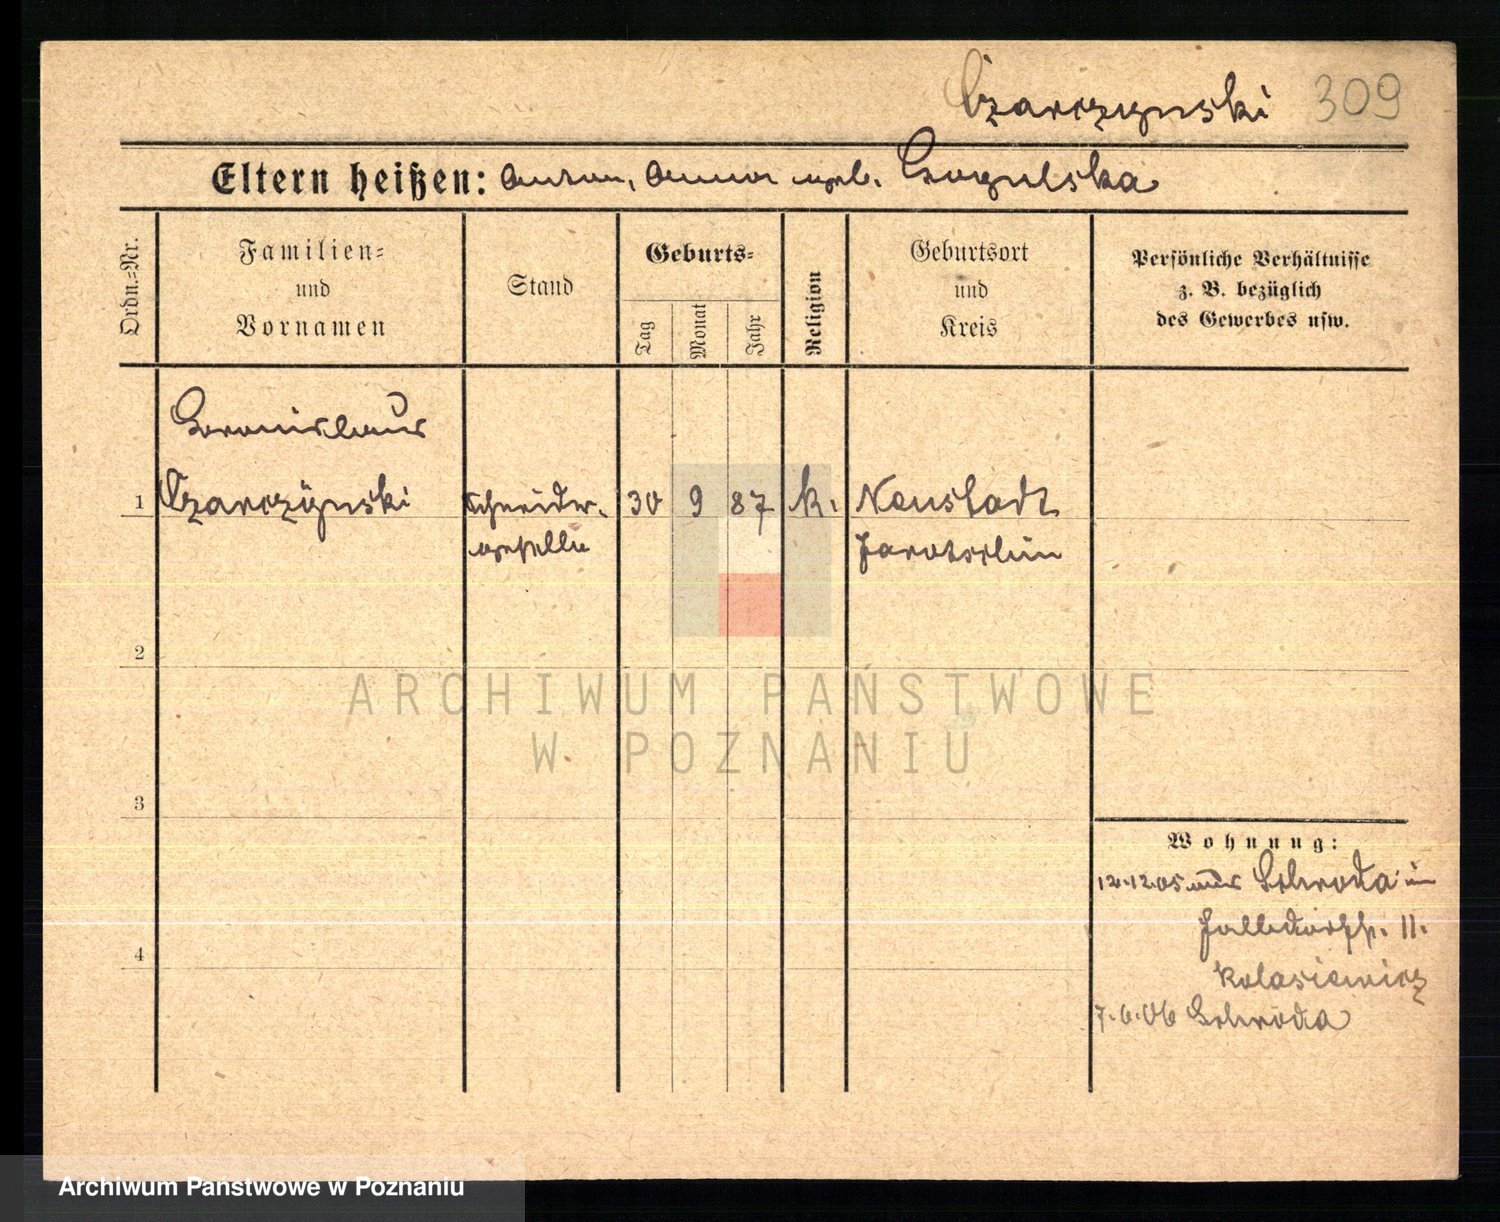 Czarczynski 309
Eltern heißen: Anton, Anna geb.
Ordn.=Nr.
Familien=
und
Vornamen
Stand
Geburts=
Tag
Monat
Jahr
Religion
Geburtsort
und
Kreis
Persönliche Verhältnisse
z. B. bezüglich
des Gewerbes usw.
Bronislaus
1 Czarczynski Schneider- 30 9 87 k. Neustadt
geselle Jarotschin
2
3
4
Wohnung:
12.12.05 aus Schroda in
II.
Kolasiewicz
7.6.06 Schroda
ARCHIWUM PAŃSTWOWE
W POZNANIU
Archiwum Państwowe w Poznaniu